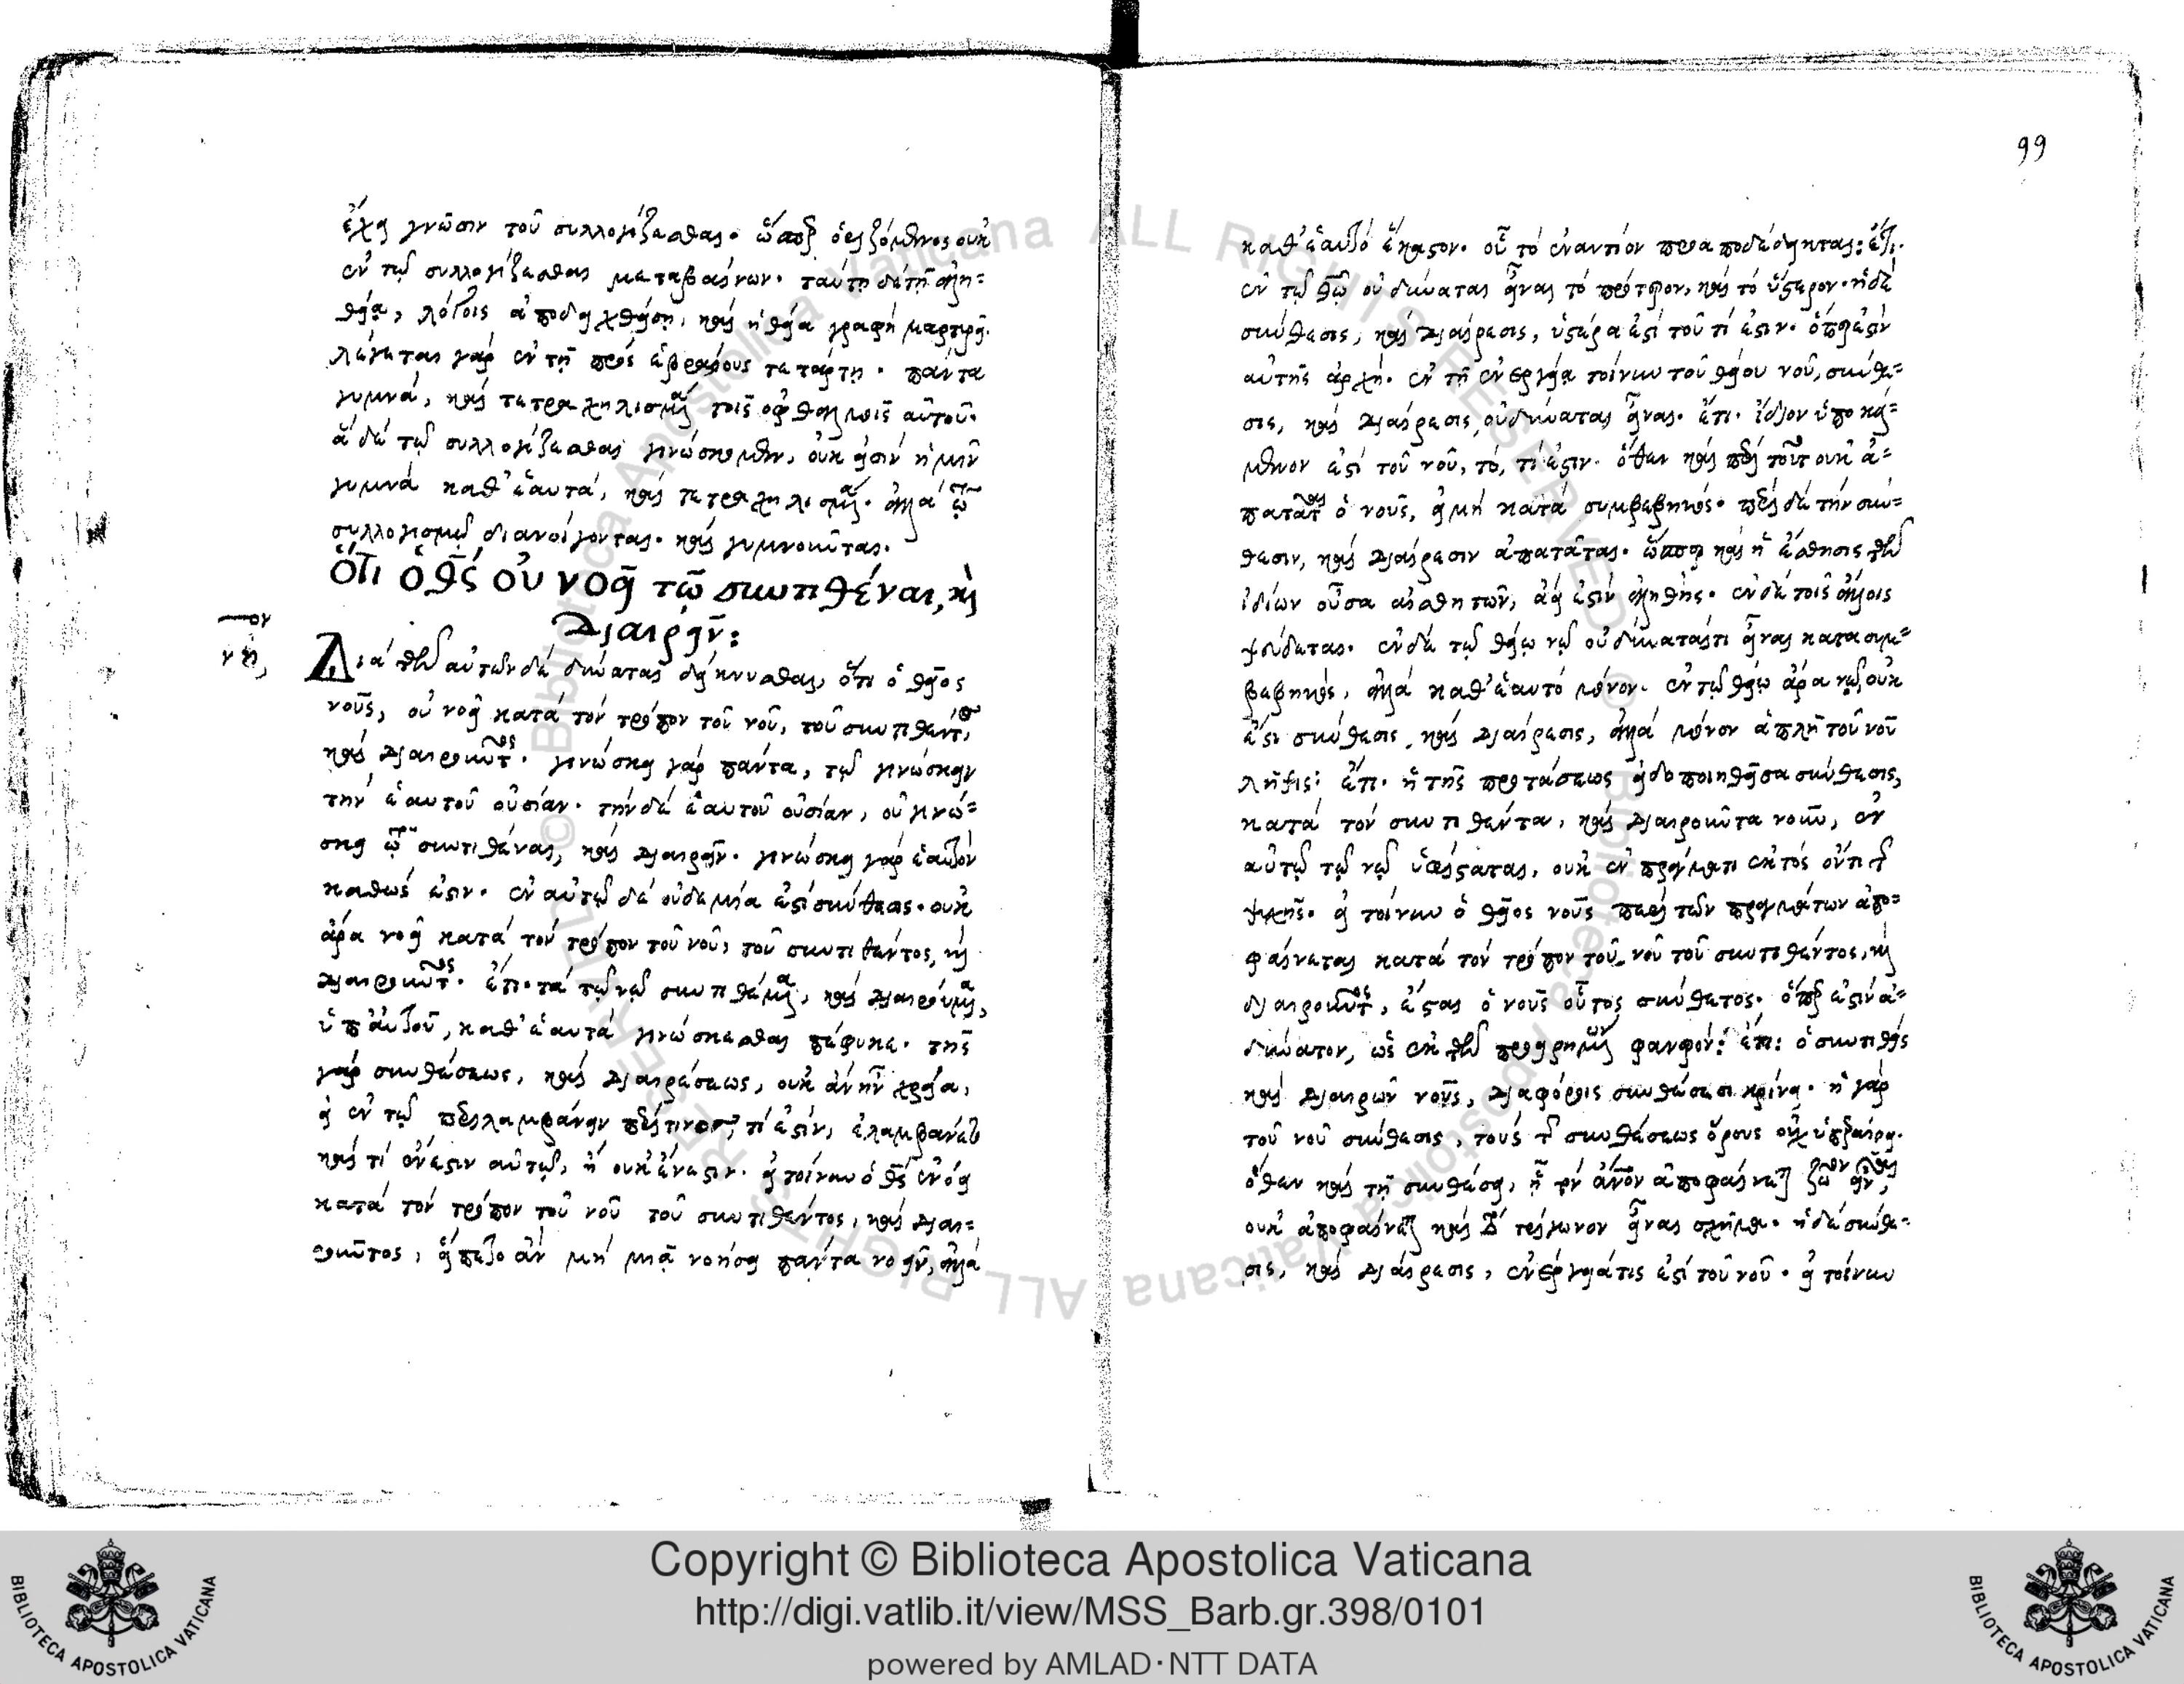 ἔχει γνῶσιν τοῦ συλλογίζεσθαι· ὥσπερ ὁριζόμενος οὐκ
ἐν τῷ συλλογίζεσθαι μεταβαίνων· ταύτῃ δὲ τῇ ἀλη=
θείᾳ, λόγοις ἀποδειχθείσῃ, καὶ ἡ θεία γραφὴ μαρτυρεῖ·
λέγεται γὰρ ἐν τῇ πρὸς ἑβραίους τετάρτῃ· πάντα
γυμνὰ, καὶ τετραχηλισμένα τοῖς ὀφθαλμοῖς αὐτοῦ·
ἃ δὲ τῷ συλλογίζεσθαι γινώσκομεν, οὐκ εἰσὶν ἡμῖν
γυμνὰ καθ' ἑαυτὰ, καὶ τετραχηλισμένα· ἀλλὰ τῷ
συλλογισμῷ διανοίγονται· καὶ γυμνοῦνται.
ὅτι ὁ θς οὐ νοεῖ τῷ συντιθέναι, καὶ
Διαιρεῖν:
νη, ον
Διὰ τῶν αὐτῶν δὲ δύναται δείκνυσθαι, ὅτι ὁ θεῖος
νοῦς, οὐ νοεῖ κατὰ τὸν τρόπον τοῦ νοῦ, τοῦ συντιθέντος
καὶ διαιροῦντος· γινώσκει γὰρ πάντα, τῷ γινώσκειν
τὴν ἑαυτοῦ οὐσίαν· τὴν δὲ ἑαυτοῦ οὐσίαν, οὐ γινώ=
σκει τῷ συντιθέναι, καὶ διαιρεῖν· γινώσκει γὰρ ἑαυτὸν
καθώς ἐστιν· ἐν αὐτῷ δὲ οὐδεμία ἐστὶ σύνθεσις· οὐκ
ἄρα νοεῖ κατὰ τὸν τρόπον τοῦ νοῦ, τοῦ συντιθέντος, καὶ
διαιροῦντος· ἔτι· τὰ τῷ νῷ συντιθέμενα, καὶ διαιρούμενα,
ὑπ' αὐτοῦ, καθ' ἑαυτὰ γινώσκεσθαι πέφυκε· τῆς
γὰρ συνθέσεως, καὶ διαιρέσεως, οὐκ ἂν ἦν χρεία,
εἰ ἐν τῷ περιλαμβάνειν περί τινος, τί ἐστιν, ἐλαμβάνετο
καὶ τί ἔνεστιν αὐτῷ, ἢ οὐκ ἔνεστιν· εἰ τοίνυν ὁ θς ἐνόει
κατὰ τὸν τρόπον τοῦ νοῦ τοῦ συντιθέντος, καὶ διαι=
ροῦντος, εἵπετο ἂν μὴ μιᾷ νοήσει πάντα νοεῖν, ἀλλὰ
99
καθ' ἑαυτὸ ἕκαστον· οὗ τὸ ἐναντίον προαποδέδεικται: ἔτι·
ἐν τῷ θῷ οὐ δύναται εἶναι τὸ πρότερον, καὶ τὸ ὕστερον· ἡ δὲ
σύνθεσις, καὶ διαίρεσις, ὑστέρα ἐστὶ τοῦ τί ἐστιν· ὅπερ ἐστὶν
αὐτῆς ἀρχή· ἐν τῇ ἐνεργείᾳ τοίνυν τοῦ θείου νοῦ, σύνθε=
σις, καὶ διαίρεσις οὐ δύναται εἶναι· ἔτι· ἴδιον ὑποκεί=
μενον ἐστὶ τοῦ νοῦ, τὸ, τί ἐστιν· ὅθεν καὶ περὶ τοῦτο οὐκ ἀ=
πατᾶται ὁ νοῦς, εἰ μὴ κατὰ συμβεβηκός· περὶ δὲ τὴν σύν=
θεσιν, καὶ διαίρεσιν ἀπατᾶται· ὥσπερ καὶ ἡ αἴσθησις τῶν
ἰδίων οὖσα αἰσθητῶν, ἀεί ἐστιν ἀληθής· ἐν δὲ τοῖς ἄλλοις
ψεύδεται· ἐν δὲ τῷ θείῳ νῷ οὐ δύναταί τι εἶναι κατὰ συμ=
βεβηκός, ἀλλὰ καθ' ἑαυτὸ μόνον· ἐν τῷ θείῳ ἄρα νῷ, οὐκ
ἔστι σύνθεσις, καὶ διαίρεσις, ἀλλὰ μόνον ἁπλῆ τοῦ νοῦ
λῆψις: ἔτι· ἡ τῆς προτάσεως εἰδοποιηθεῖσα σύνθεσις,
κατὰ τὸν συντιθέντα, καὶ διαιροῦντα νοῦν, ἐν
αὐτῷ τῷ νῷ ὑφίσταται, οὐκ ἐν πράγματι ἐκτὸς ὄντι τῆς
ψυχῆς· εἰ τοίνυν ὁ θεῖος νοῦς περὶ τῶν πραγμάτων ἀπο=
φαίνεται κατὰ τὸν τρόπον τοῦ νοῦ τοῦ συντιθέντος, καὶ
διαιροῦντος, ἔσται ὁ νοῦς οὗτος σύνθετος· ὅπερ ἐστὶν ἀ=
δύνατον, ὡς ἐκ τῶν προειρημένων φανερόν: ἔτι: ὁ συντιθεὶς
καὶ διαιρῶν νοῦς, διαφόροις συνθέσεσι κρίνει· ἡ γὰρ
τοῦ νοῦ σύνθεσις, τοὺς τῆς συνθέσεως ὅρους οὐχ ὑπεραίρει·
ὅθεν καὶ τῇ συνθέσει, ᾗ τὸν ἄνον ἀποφαίνεται ζῶον εἶναι,
οὐκ ἀποφαίνεται καὶ τὸ τρίγωνον εἶναι σχῆμα· ἡ δὲ σύνθε=
σις, καὶ διαίρεσις, ἐνέργειά τις ἐστὶ τοῦ νοῦ· εἰ τοίνυν
Copyright © Biblioteca Apostolica Vaticana
http://digi.vatlib.it/view/MSS_Barb.gr.398/0101
powered by AMLAD·NTT DATA